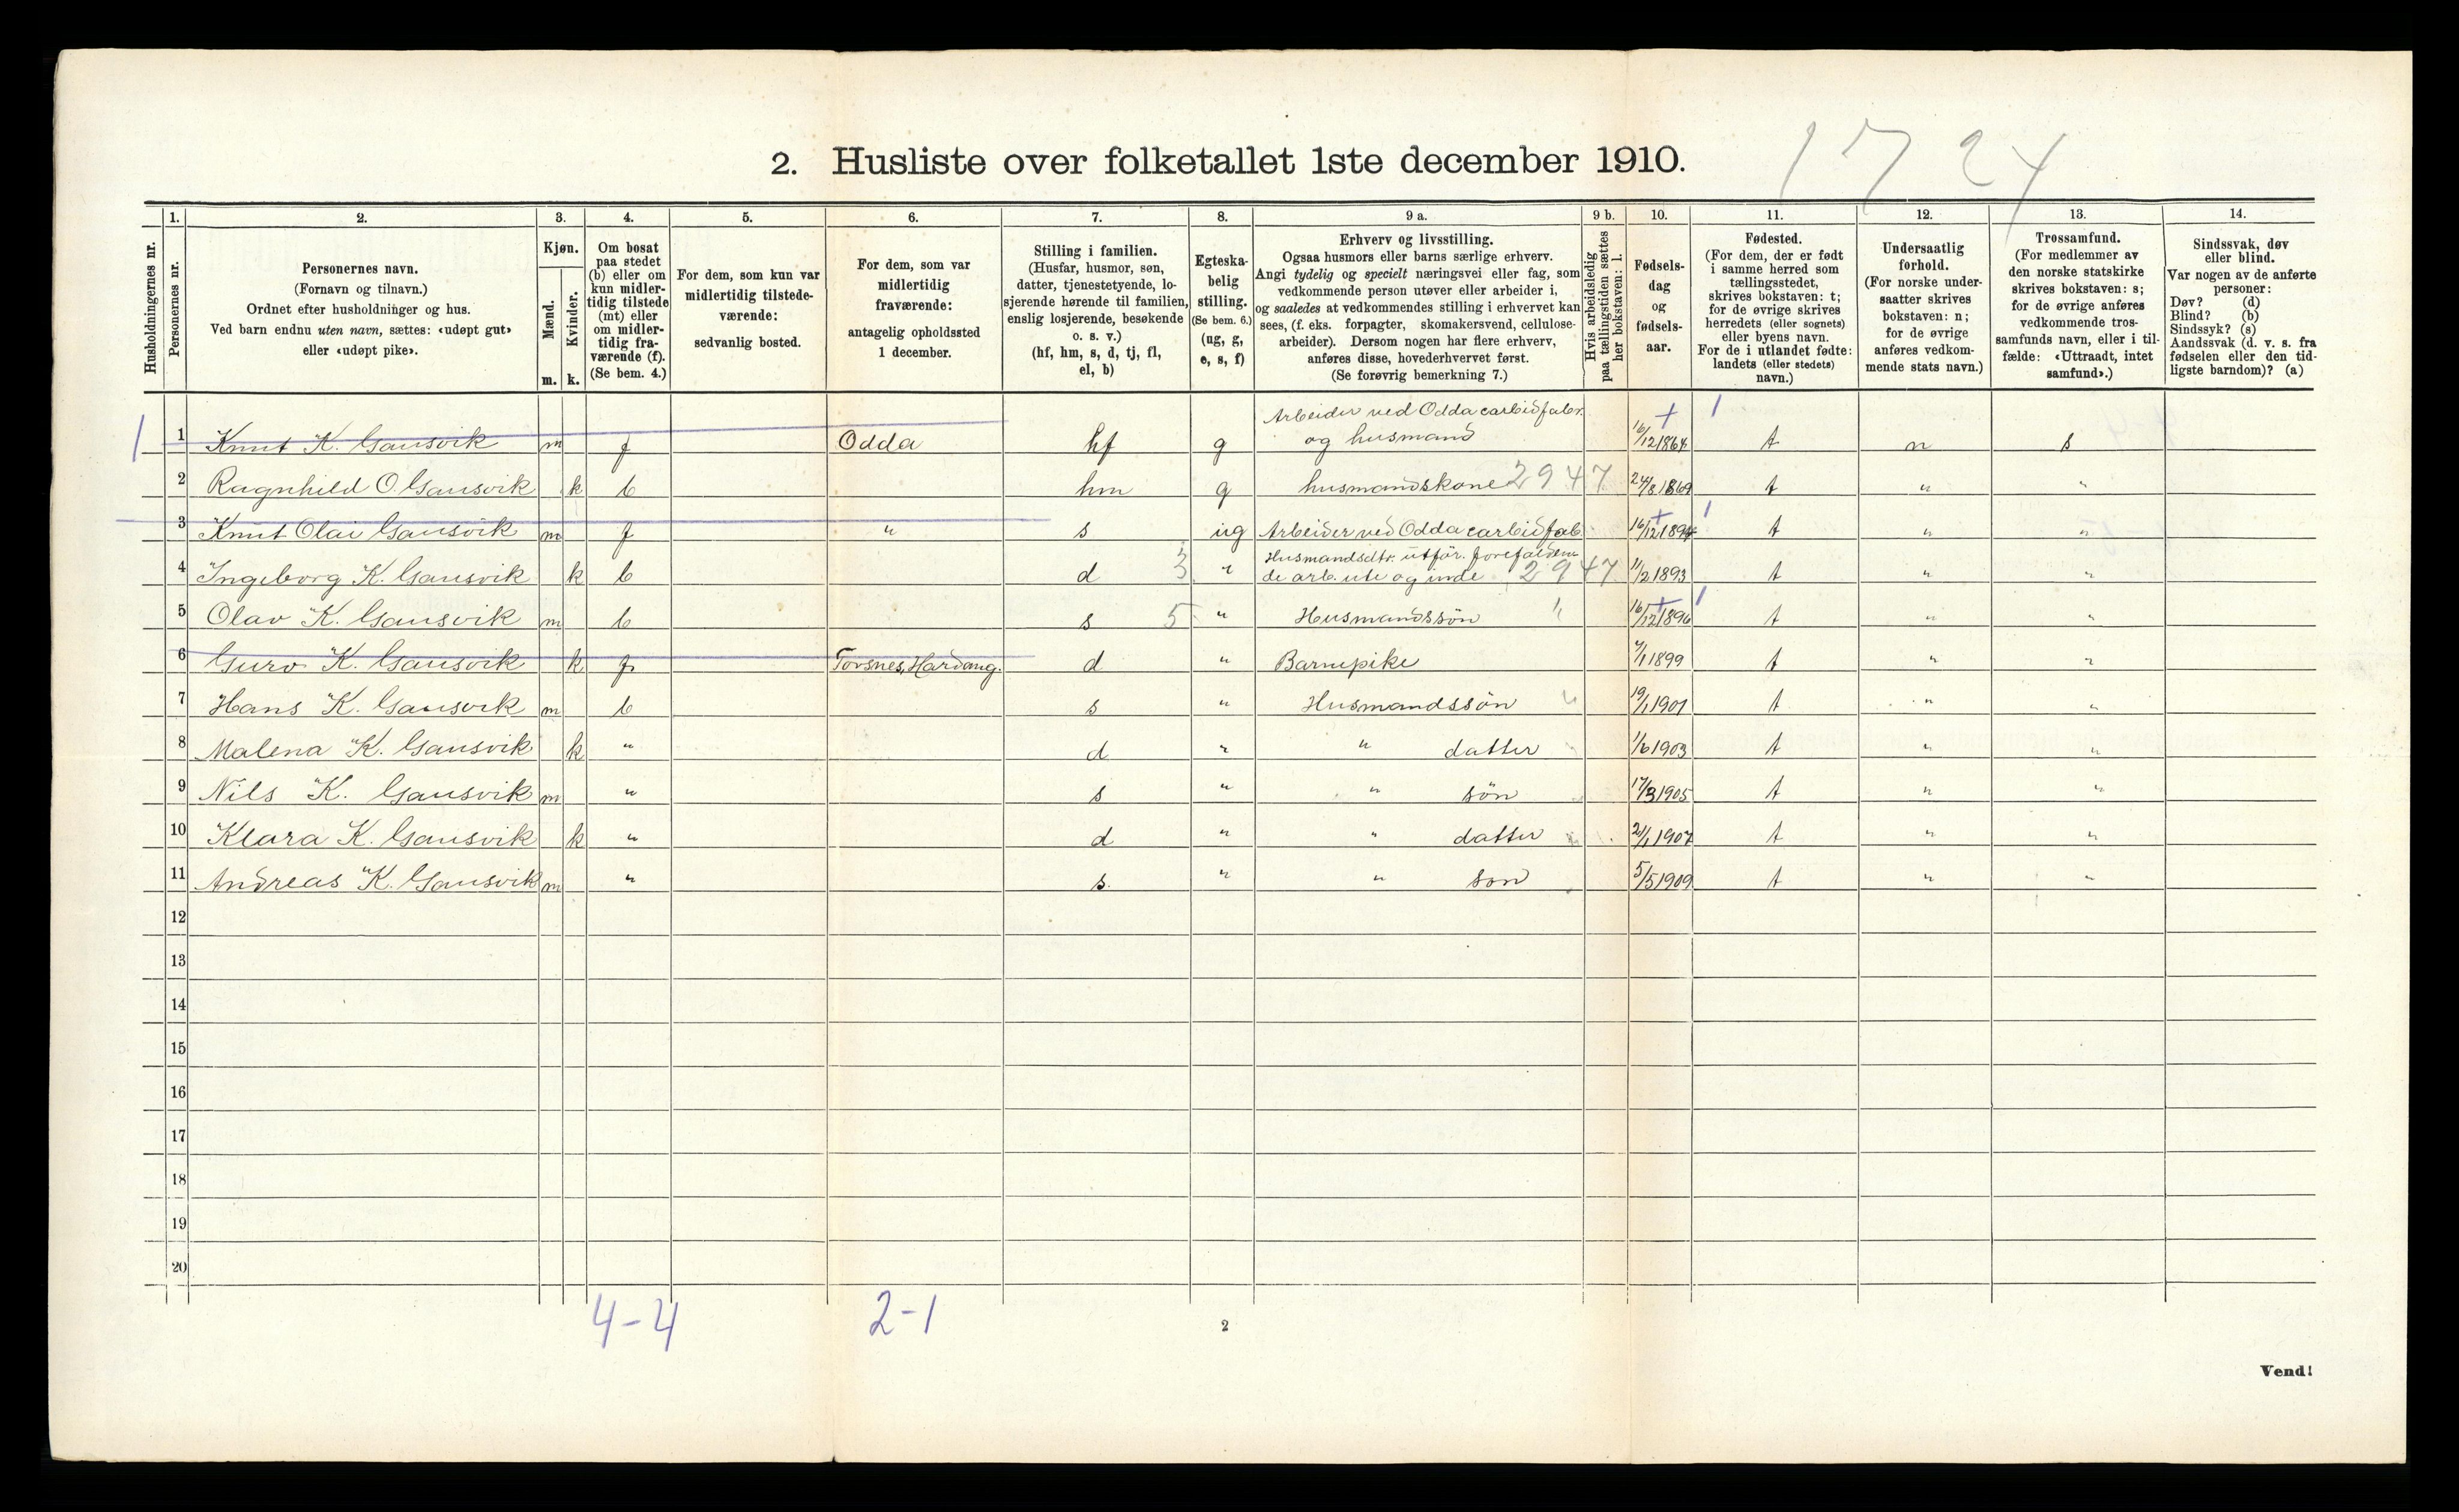 1724
2. Husliste over folketallet 1ste december 1910.
1. 2. 3. 4. 5. 6. 7. 8. 9 a. 9 b. 10. 11. 12. 13. 14.
Husholdningernes nr.
Personernes nr.
Personernes navn.
(Fornavn og tilnavn.)
Ordnet efter husholdninger og hus.
Ved barn endnu uten navn, sættes: «udøpt gut»
eller «udøpt pike».
Kjøn.
Mænd.
Kvinder.
m. k.
Om bosat
paa stedet
(b) eller om
kun midler-
tidig tilstede
(mt) eller
om midler-
tidig fra-
værende (f).
(Se bem. 4.)
For dem, som kun var
midlertidig tilstede-
værende:
sedvanlig bosted.
For dem, som var
midlertidig
fraværende:
antagelig opholdssted
1 december.
Stilling i familien.
(Husfar, husmor, søn,
datter, tjenestetyende, lo-
sjerende hørende til familien,
enslig losjerende, besøkende
o. s. v.)
(hf, hm, s, d, tj, fl,
el, b)
Egteska-
belig
stilling.
(Se bem. 6.)
(ug, g,
e, s, f)
Erhverv og livsstilling.
Ogsaa husmors eller barns særlige erhverv.
Angi tydelig og specielt næringsvei eller fag, som
vedkommende person utøver eller arbeider i,
og saaledes at vedkommendes stilling i erhvervet kan
sees, (f. eks. forpagter, skomakersvend, cellulose-
arbeider). Dersom nogen har flere erhverv,
anføres disse, hovederhvervet først.
(Se forøvrig bemerkning 7.)
Hvis arbeidsledig
paa tællingstiden sættes
her bokstaven: l.
Fødsels-
dag
og
fødsels-
aar.
Fødested.
(For dem, der er født
i samme herred som
tællingsstedet,
skrives bokstaven: t;
for de øvrige skrives
herredets (eller sognets)
eller byens navn.
For de i utlandet fødte:
landets (eller stedets)
navn.)
Undersaatlig
forhold.
(For norske under-
saatter skrives
bokstaven: n;
for de øvrige
anføres vedkom-
mende stats navn.)
Trossamfund.
(For medlemmer av
den norske statskirke
skrives bokstaven: s;
for de øvrige anføres
vedkommende tros-
samfunds navn, eller i til-
fælde: «Uttraadt, intet
samfund».)
Sindssvak, døv
eller blind.
Var nogen av de anførte
personer:
Døv? (d)
Blind? (b)
Sindssyk? (s)
Aandssvak (d. v. s. fra
fødselen eller den tid-
ligste barndom)? (a)
Arbeider ved Odda carbidfabr.
1 1 Knut K. Gausvik m f Odda hf g og husmand 16/12 1864 t n s
2 Ragnhild O. Gausvik k b hm g husmandskone 2947 24/8 1869 t " "
3 Knut Olai Gausvik m f " s ug Arbeider ved Odda carbidfab. 16/12 1894 t " "
Husmandsdtr. utför. forefalden-
4 Ingeborg K. Gausvik k b d 3 " de arb. ute og inde 2947 1/2 1893 t " "
5 Olav K. Gausvik m b s 5 " Husmandssön " 16/12 1896 t " "
6 Guro K. Gausvik k f Torsnes, Hardang. d " Barnepike 7/1 1899 t " "
7 Hans K. Gausvik m b s " Husmandssön " 19/1 1901 t " "
8 Malena K. Gausvik k " d " " datter 1/6 1903 t " "
9 Nils K. Gausvik m " s " " sön 17/3 1905 t " "
10 Klara K. Gausvik k " d " " datter 21/1 1907 t " "
11 Andreas K. Gausvik m " s. " " son 5/5 1909 t " "
12
13
14
15
16
17
18
19
20
4-4 2-1
2
Vend!